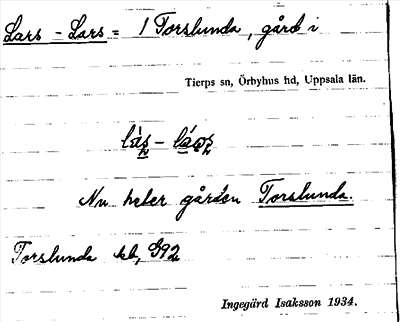 Lars - Lars = / Torslunda, gård i
Tierps sn, Örbyhus hd, Uppsala län.
Nu heter gården Torslunda.
Torslunda kb, G92
Ingegärd Isaksson 1934.